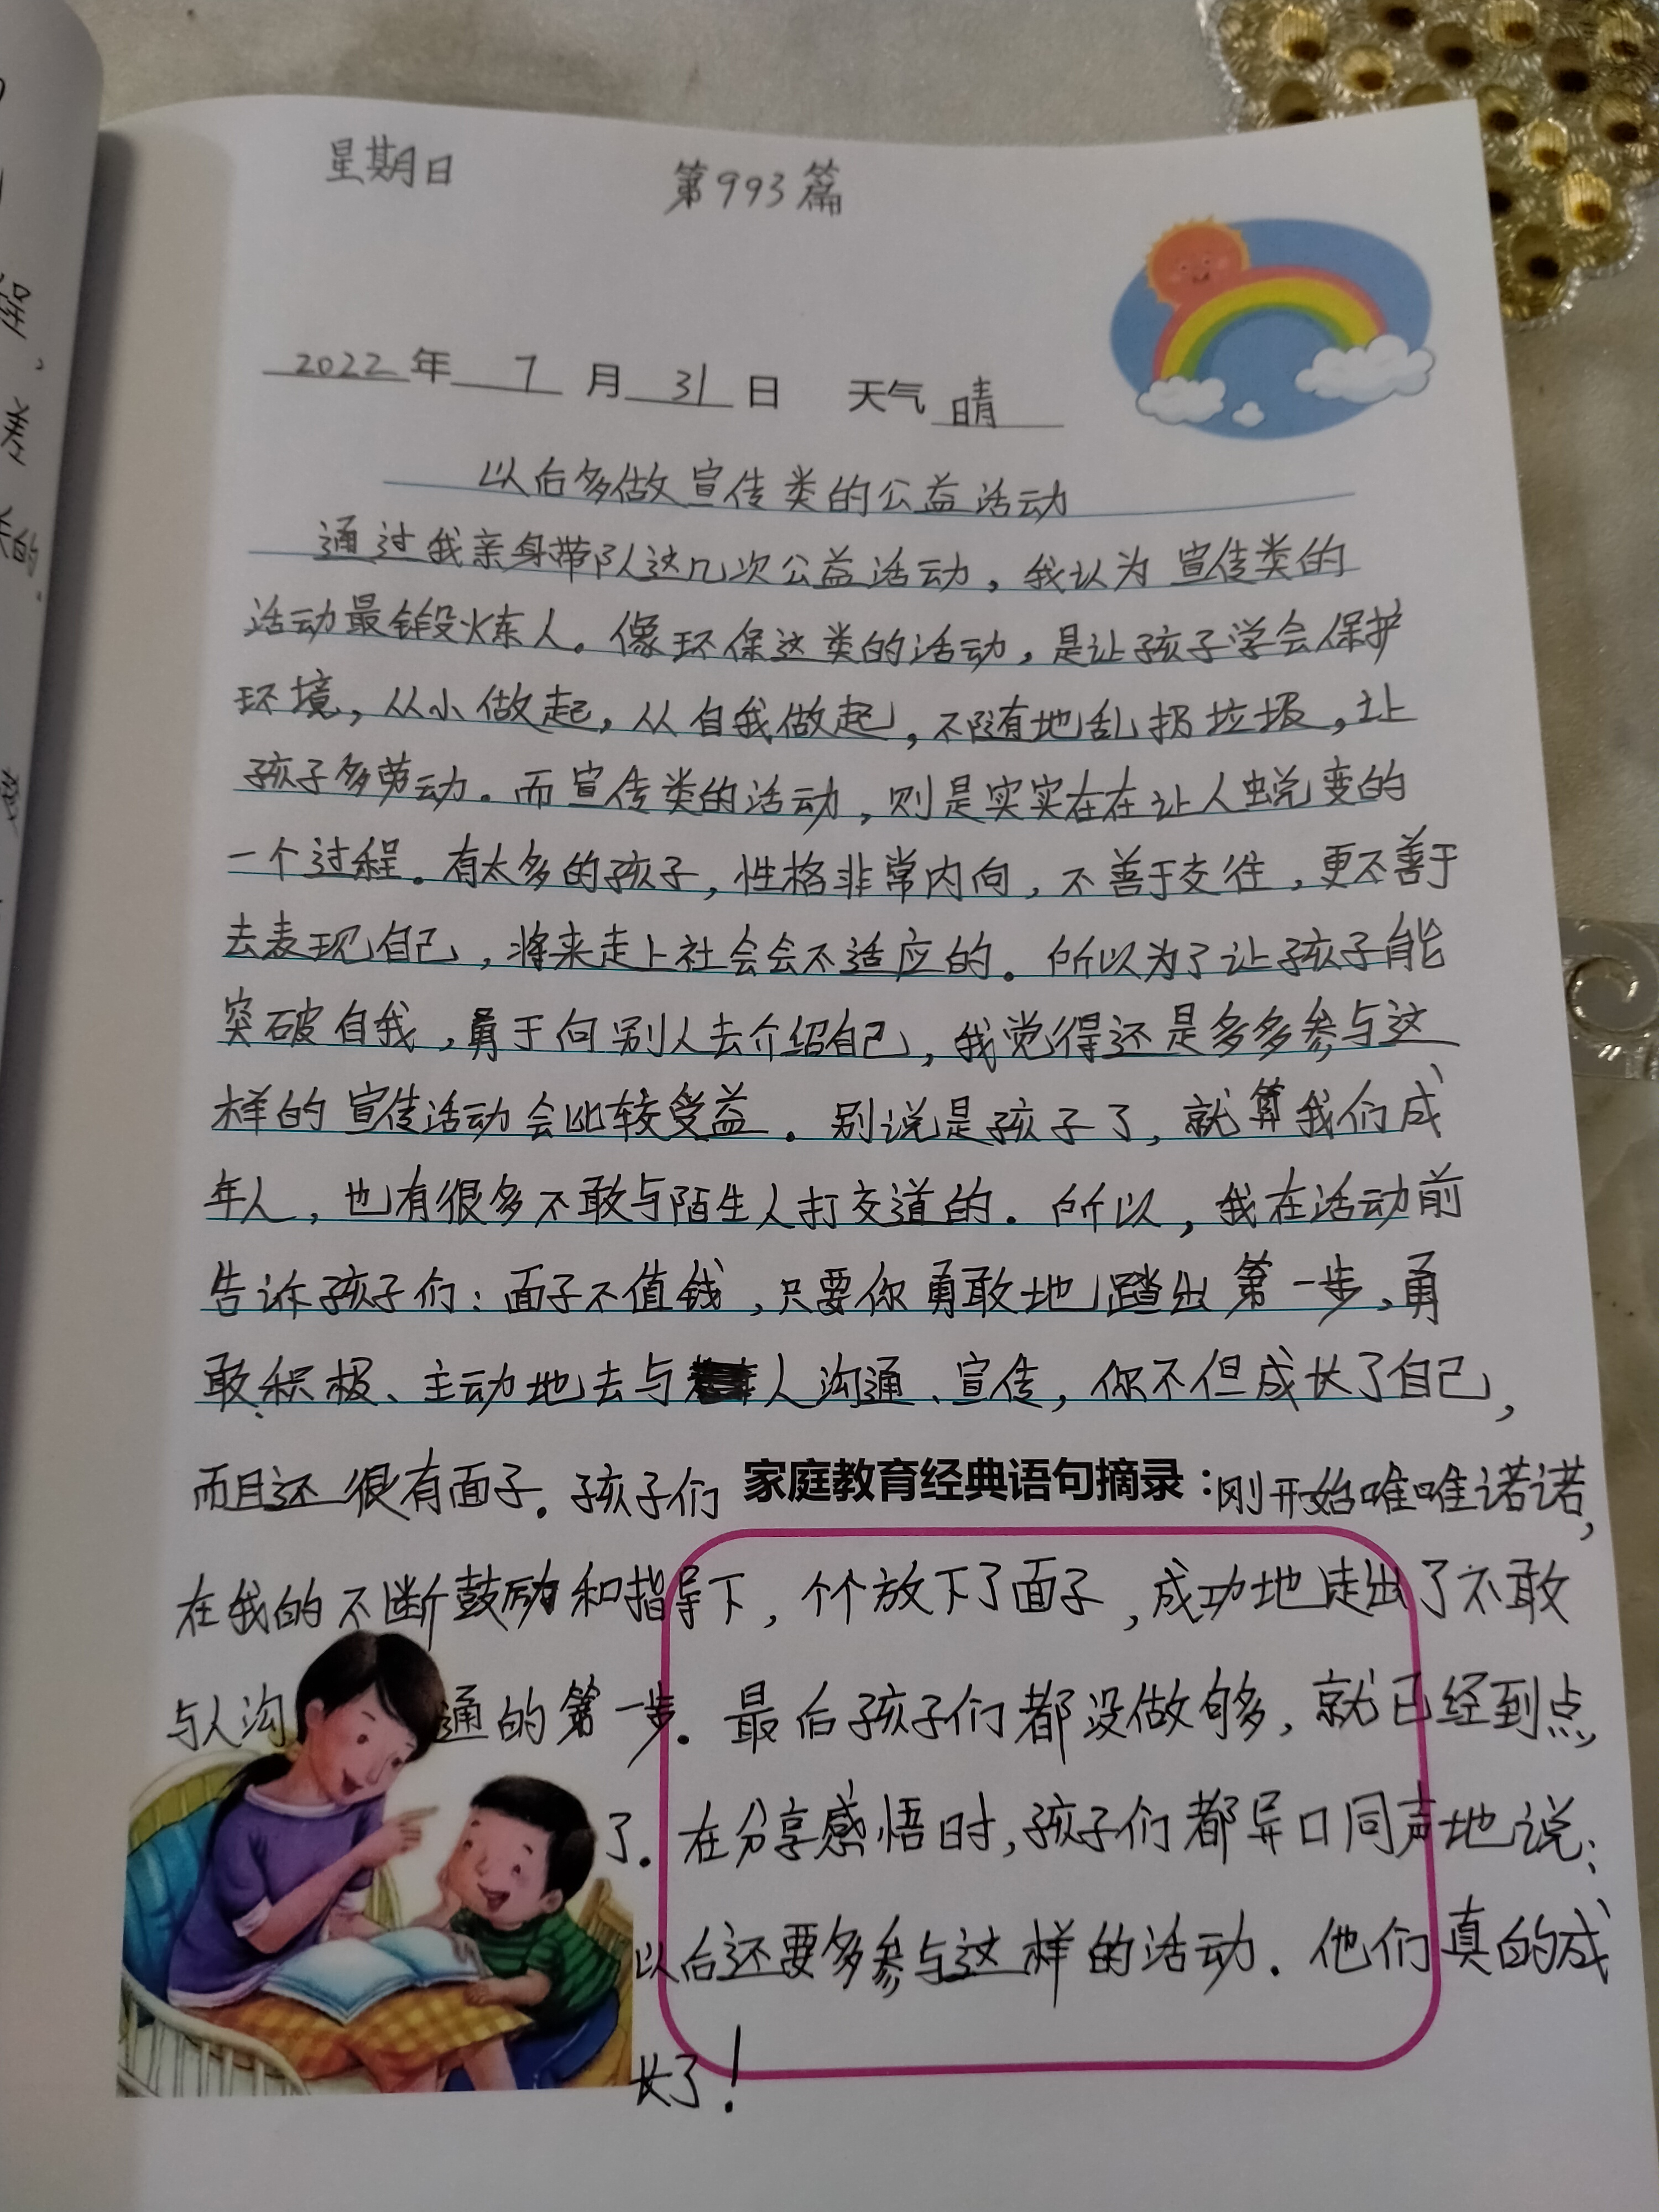 星期日 第993篇
2022年 7 月 31 日 天气 晴
以后多做宣传类的公益活动
通过我亲身带队这几次公益活动，我认为宣传类的
活动最锻炼人。像环保这类的活动，是让孩子学会保护
环境，从小做起，从自我做起，不随地乱扔垃圾，让
孩子多劳动。而宣传类的活动，则是实实在在让人蜕变的
一个过程。有太多的孩子，性格非常内向，不善于交往，更不善于
去表现自己，将来走上社会会不适应的。所以为了让孩子能
突破自我，勇于向别人去介绍自己，我觉得还是多多参与这
样的宣传活动会比较受益。别说是孩子了，就算我们成
年人，也有很多不敢与陌生人打交道的。所以，我在活动前
告诉孩子们：面子不值钱，只要你勇敢地踏出第一步，勇
敢、积极、主动地去与人沟通、宣传，你不但成长了自己，
而且还很有面子。孩子们 家庭教育经典语句摘录：刚开始唯唯诺诺，
在我的不断鼓励和指导下，个个放下了面子，成功地走出了不敢
与人沟通的第一步。最后孩子们都没做够，就已经到点
了。在分享感悟时，孩子们都异口同声地说：
以后还要多参与这样的活动。他们真的成
长了！